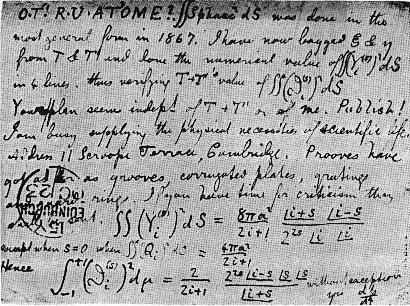 O.T! R.U. AT OME? ∬Spharc² dS was done in the
most general form in 1867. I have now bagged ξ & η
from T & T' and done the numerical value of ∬(Y_i^(s))² dS
in 4 lines. thus verifying T+T''s value of ∬(ϑ_i^(s))² dS
Your plan seems indept of T + T' or of me. Publish!
I am busy supplying the physical necessities of scientific life
Address 11 Scroope Terrace, Cambridge. Prooves have
got as far as grooves, corrugated plates, grating
rings. If you have time for criticism then
∬(Y_i^(s))² dS = 8πa²/(2i+1) |i+s |i−s / 2^(2s) |i |i
except when s=0 when ∬(Q_i)² dS = 4πa²/(2i+1)
Hence ∫_{−1}^{+1} (ϑ_i^(s))² dμ = 2/(2i+1) 2^(2s) |i−s |s |s / |i+s without exception
EDINBURGH